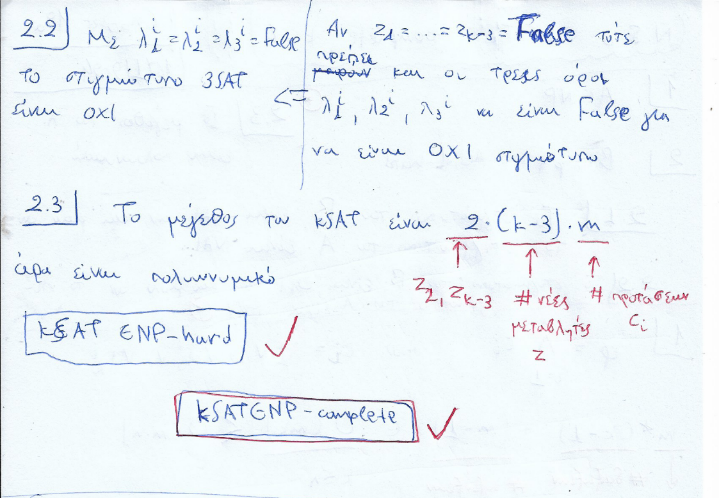 2.2 Με λ₁ⁱ = λ₂ⁱ = λ₃ⁱ = False
το στιγμιότυπο 3SAT
είναι ΟΧΙ
Αν z₁ = ... = z_{k-3} = False τότε
πρέπει και οι τρεις όροι
<= λ₁ⁱ, λ₂ⁱ, λ₃ⁱ να είναι False για
να είναι ΟΧΙ στιγμιότυπο
2.3 Το μέγεθος του kSAT είναι 2·(k-3)·m
άρα είναι πολυωνυμικό
z₁, z_{k-3} # νέες μεταβλητές z # προτάσεων Cᵢ
kSAT ∈NP-hard ✓
kSAT∈NP-complete ✓